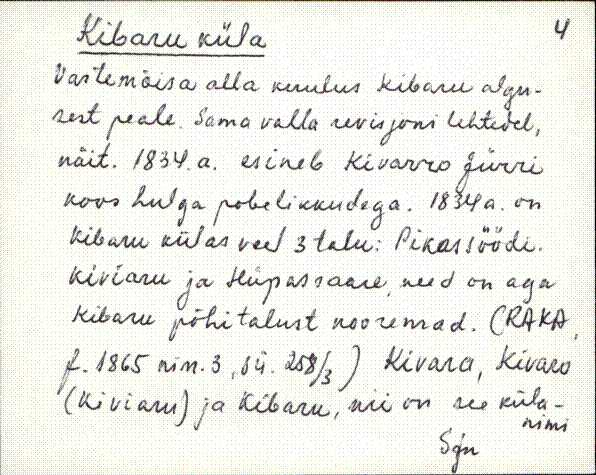 4
Kibaru küla
Vastemõisa alla kuulus Kibaru algu-
sest peale. Sama valla revisjoni lehtedel,
näit. 1834.a. esineb Kivarro Jürri
koos hulga pobelikkudega. 1834 a. on
Kibaru külas veel 3 talu: Pikassöödi.
Kiviaru ja Hüpassaare, need on aga
Kibaru põhitalust nooremad. (RAKA,
f. 1865 nim. 3, sü. 258/3) Kivara, Kivaro
(Kiviaru) ja Kibaru, nii on see küla-
nimi